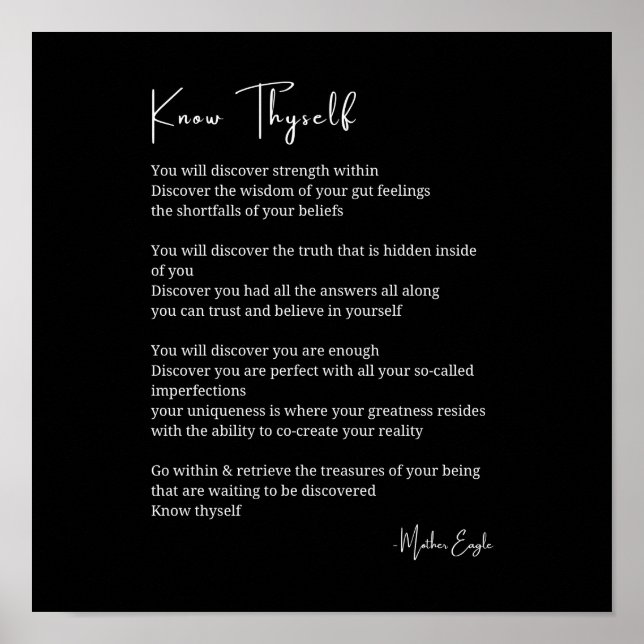 Know Thyself
You will discover strength within
Discover the wisdom of your gut feelings
the shortfalls of your beliefs
You will discover the truth that is hidden inside
of you
Discover you had all the answers all along
you can trust and believe in yourself
You will discover you are enough
Discover you are perfect with all your so-called
imperfections
your uniqueness is where your greatness resides
with the ability to co-create your reality
Go within & retrieve the treasures of your being
that are waiting to be discovered
Know thyself
-Mother Eagle